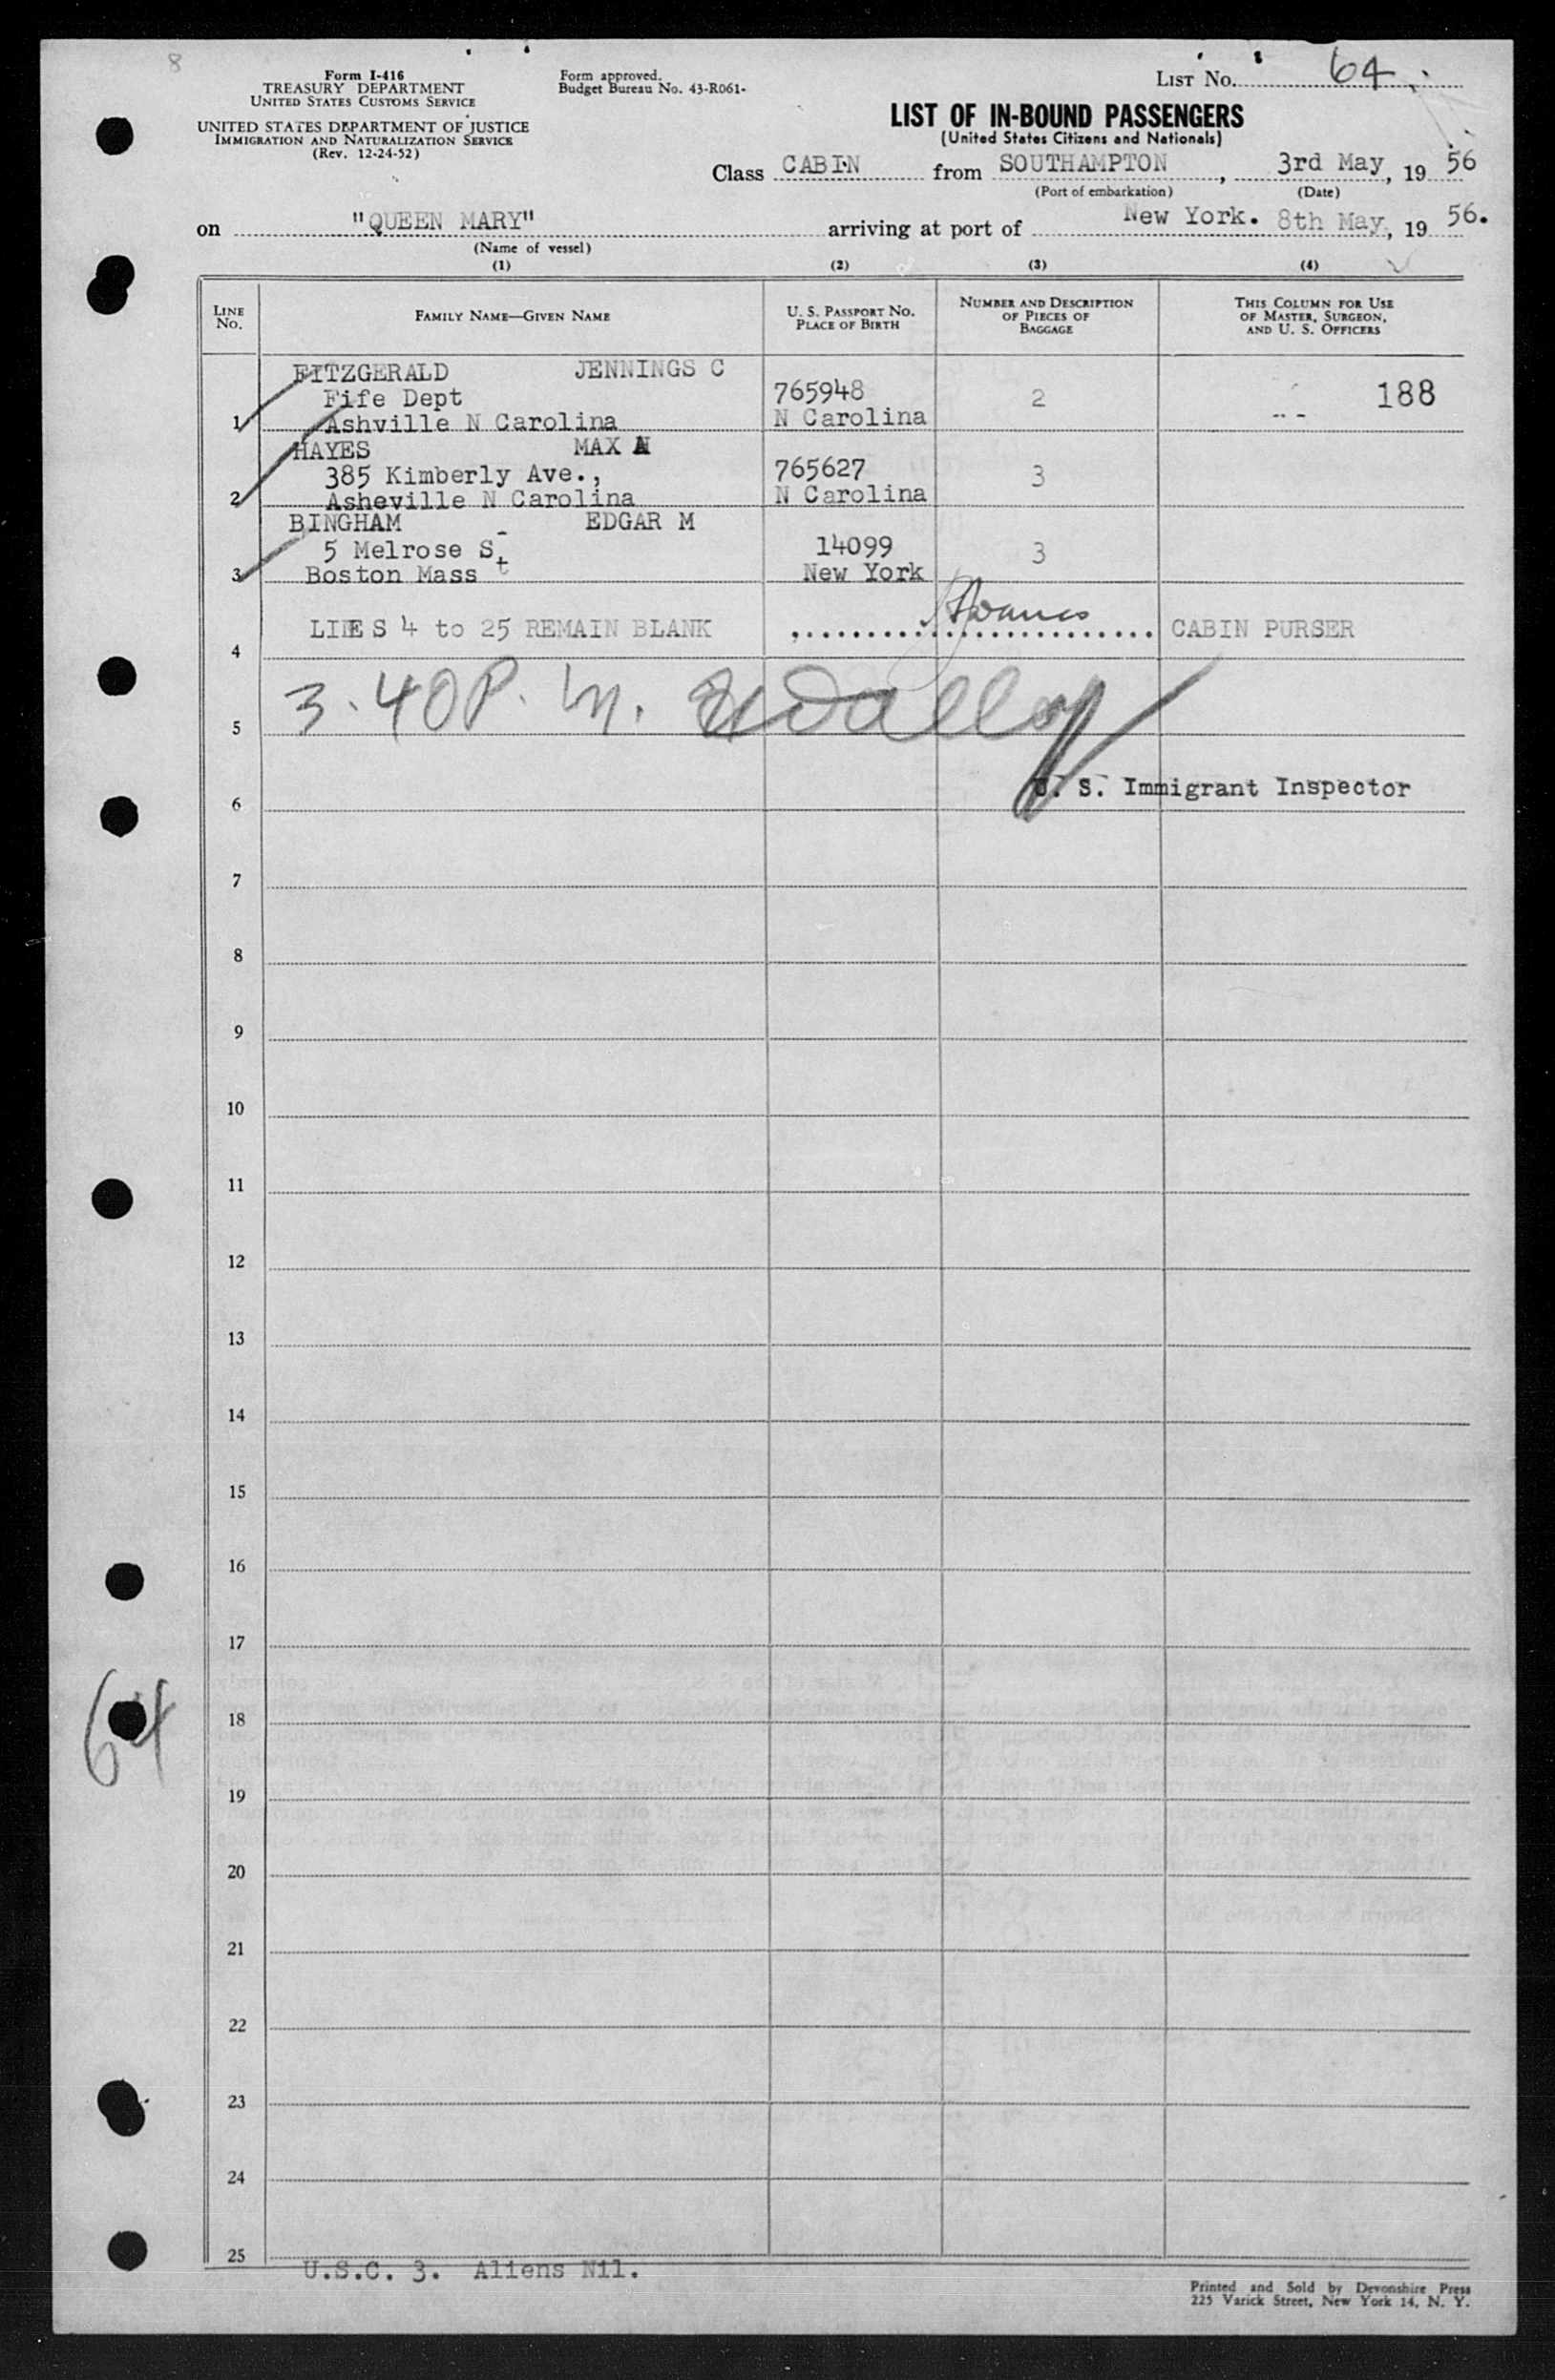 8
Form I-416
TREASURY DEPARTMENT
UNITED STATES CUSTOMS SERVICE
UNITED STATES DEPARTMENT OF JUSTICE
IMMIGRATION AND NATURALIZATION SERVICE
(Rev. 12-24-52)
Form approved.
Budget Bureau No. 43-R061-
LIST No. 64
LIST OF IN-BOUND PASSENGERS
(United States Citizens and Nationals)
Class CABIN from SOUTHAMPTON, 3rd May, 19 56
(Port of embarkation) (Date)
on "QUEEN MARY" arriving at port of New York. 8th May, 19 56.
(Name of vessel)
(1) (2) (3) (4)
LINE No. FAMILY NAME—GIVEN NAME U. S. PASSPORT NO. PLACE OF BIRTH NUMBER AND DESCRIPTION OF PIECES OF BAGGAGE THIS COLUMN FOR USE OF MASTER, SURGEON, AND U. S. OFFICERS
FITZGERALD JENNINGS C
Fife Dept 765948 2 188
1 Ashville N Carolina N Carolina
HAYES MAX N
385 Kimberly Ave., 765627 3
2 Asheville N Carolina N Carolina
BINGHAM EDGAR M
5 Melrose St 14099 3
3 Boston Mass New York
LINES 4 to 25 REMAIN BLANK CABIN PURSER
4
3.40 P.M.
5
U. S. Immigrant Inspector
6
7
8
9
10
11
12
13
14
15
16
17
64
18
19
20
21
22
23
24
25
U.S.C. 3. Aliens Nil.
Printed and Sold by Devonshire Press
225 Varick Street, New York 14, N. Y.